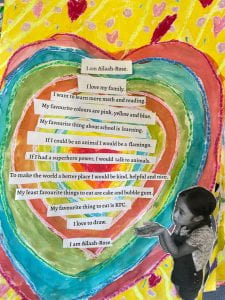 I am Ailash-Rose.
I love my family.
I want to learn more math and reading.
My favourite colours are pink, yellow and blue.
My favourite thing about school is learning.
If I could be an animal I would be a flamingo.
If I had a superhero power, I would talk to animals.
To make the world a better place I would be kind, helpful and
My least favourite things to eat are cake and bubble gum.
My favourite thing to eat is KFC.
I love to draw.
I am Ailash-Rose.